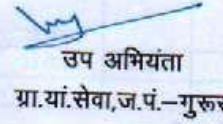 उप अभियंता
ग्रा.यां.सेवा,ज.पं.–गुरूर